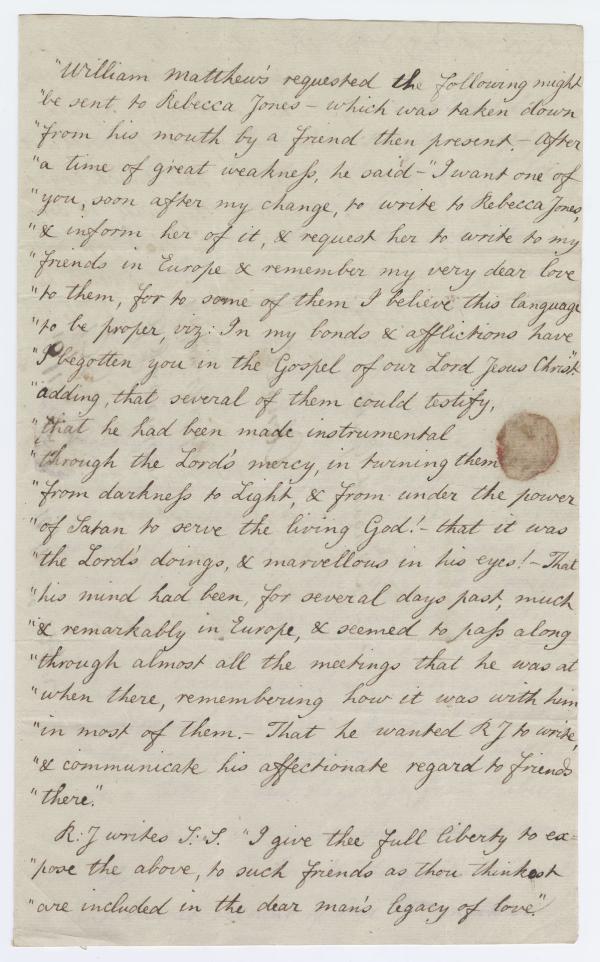 "William Matthews requested the following might
"be sent to Rebecca Jones – which was taken down
"from his mouth by a friend then present. – After
"a time of great weakness, he said – "I want one of
"you, soon after my change, to write to Rebecca Jones,
"& inform her of it, & request her to write to my
"friends in Europe & remember my very dear love
"to them, for to some of them I believe this language
"to be proper, viz: In my bonds & afflictions have
"I begotten you in the Gospel of our Lord Jesus Christ".
"adding, that several of them could testify,
"that he had been made instrumental
"through the Lord's mercy, in turning them
"from darkness to Light, & from under the power
"of Satan to serve the living God! – that it was
"the Lord's doings, & marvellous in his eyes! – That
"his mind had been, for several days past, much
"& remarkably in Europe, & seemed to pass along
"through almost all the meetings that he was at
"when there, remembering how it was with him
"in most of them. – That he wanted R J to write,
"& communicate his affectionate regard to friends
"there".
R: J writes S: S. "I give thee full liberty to ex=
"pose the above, to such friends as thou thinkest
"are included in the dear man's legacy of love".